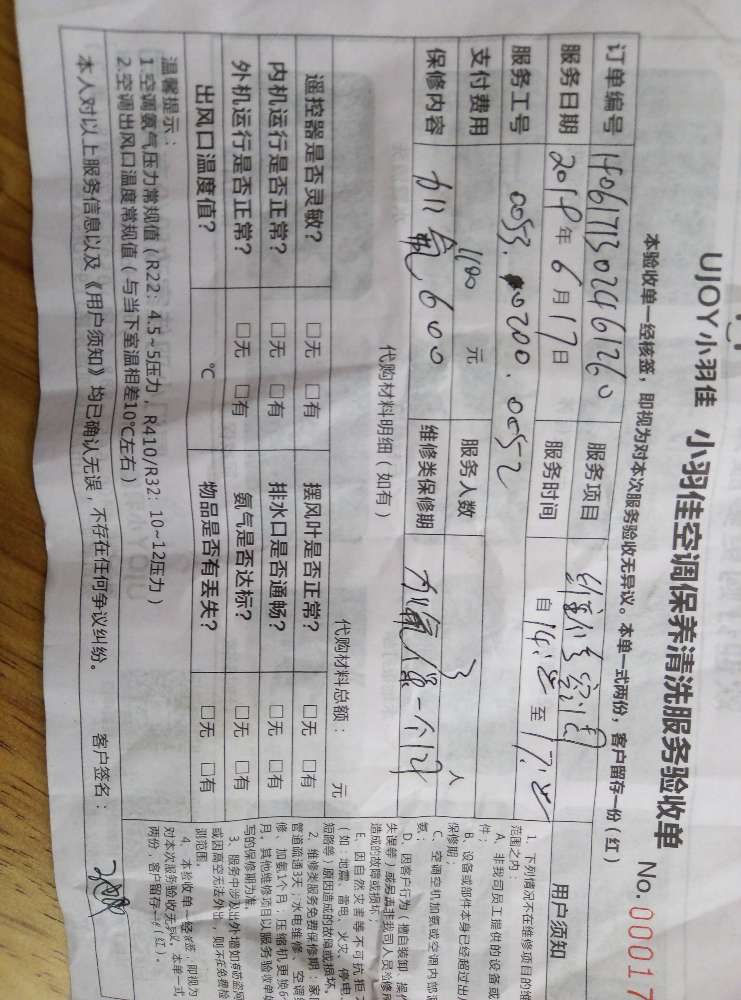 UJOY小羽佳 小羽佳空调保养清洗服务验收单 No.00017
本验收单一经核签，即视为对本次服务验收无异议。本单一式两份，客户留存一份（红）
订单编号 服务项目
服务日期 2018年6月17日 服务时间 自 至
服务工号 0053. 00200. 0052
支付费用 1100 元 服务人数 3 人
保修内容 加氨600 维修类保修期 加氨保一个月
代购材料明细（如有） 代购材料总额： 元
遥控器是否灵敏？ □无 □有 摆风叶是否正常？ □无 □有
内机运行是否正常？ □无 □有 排水口是否通畅？ □无 □有
外机运行是否正常？ □无 □有 氨气是否达标？ □无 □有
出风口温度值？ ℃ 物品是否有丢失？ □无 □有
温馨提示：
1.空调氨气压力常规值（R22：4.5~5压力，R410/R32：10~12压力）
2.空调出风口温度常规值（与当下室温相差10℃左右）
本人对以上服务信息以及《用户须知》均已确认无误，不存在任何争议纠纷。 客户签名：
用户须知
1、下列情况不在维修项目的维
范围之内：
A、非我司员工提供的设备或
件；
B、设备或部件本身已经超过出厂
保修期；
C、空调空机加氨或空调内部
氨；
D、因客户行为（擅自装卸、操作
失误等）或另再非我司人员维修所
造成的故障或损坏；
E、因自然灾害等不可抗拒
（如：地震、雷电、火灾、停电
短路等）原因造成的故障或损坏。
2、维修类服务免费保修期：家
管道疏通3天；水电维修、空调
修、加氨1个月；压缩机更换6
月。其他维修项目以服务验收单
写的保修期为准。
3、服务中涉及出外墙如有防盗网
或因高空无法外出，则不在免费检
测范围。
4、本验收单一经核签，即视为
对本次服务验收无异议。本单一式
两份，客户留存一份（红）。